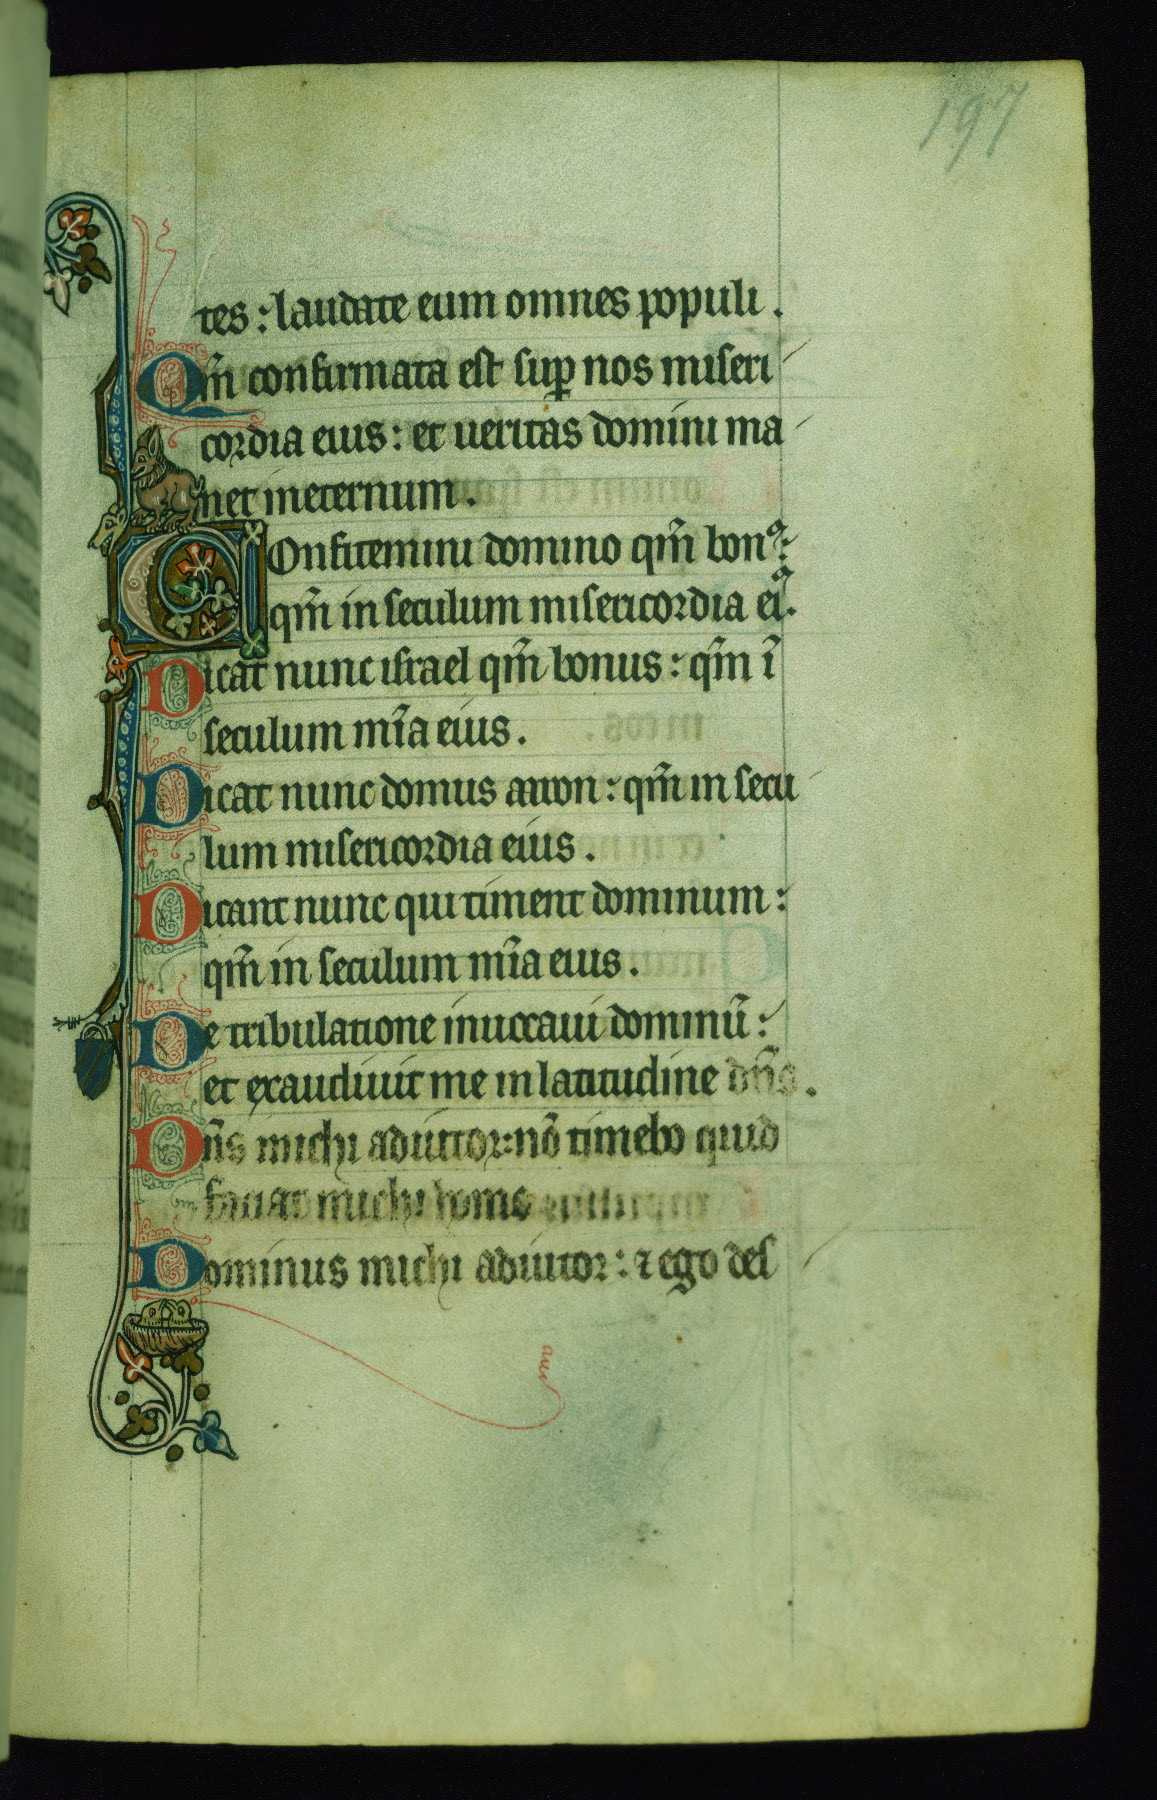 197
tes : laudate eum omnes populi .
Qm̄ confirmata est sup̱ nos miseri
cordia eius : et ueritas domini ma
net ineternum .
Confitemini domino qm̄ bonꝰ :
qm̄ in seculum misericordia eiꝰ .
Dicat nunc israel qm̄ bonus : qm̄ ī
seculum mīa eius .
Dicat nunc domus aaron : qm̄ in secu
lum misericordia eius .
Dicant nunc qui timent dominum :
qm̄ in seculum mīa eius .
De tribulatione inuocaui dominū :
et exaudiuit me in latitudine dn̄s .
Dn̄s michi adiutor : nō timebo quid
faciat michi homo
Dominus michi adiutor : ⁊ ego des